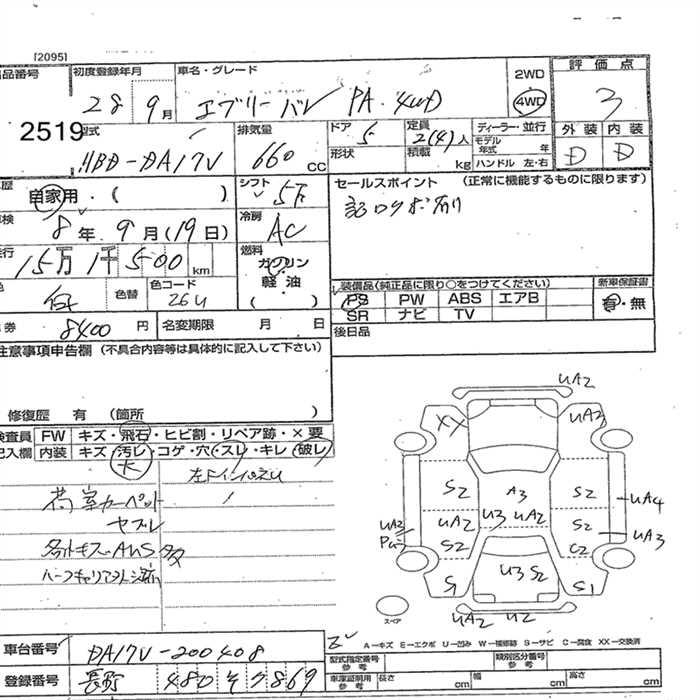 [2095]
出品番号 初度登録年月 車名・グレード 2WD 評価点
28 9月 エブリーバン PA 4WD 4WD 3
2519 型式 排気量 ドア 5 定員 2(4)人 ディーラー・並行 外装 内装
HBD-DA17V 660 CC 形状 積載 kg モデル年式 年 D D
ハンドル 左・右
歴 自家用・( ) シフト 5F セールスポイント (正常に機能するものに限ります)
車検 8年 9月(19日) 冷房 AC 記ログボ有リ
走行 15万1千500km 燃料 ガソリン
軽・油
色 白 色替 色コード 26U 装備品(純正品に限り○をつけてください) 新車保証書
PS PW ABS エアB 有・無
SR ナビ TV
券 8400円 名変期限 月 日 後日品
注意事項申告欄 (不具合内容等は具体的に記入して下さい)
修復歴 有 (箇所 )
検査員 FW キズ・飛石・ヒビ割・リペア跡・×要
記入欄 内装 キズ・汚レ・コゲ・穴・スレ・キレ・破レ
大
荷室カーペット
ヤブレ
UA2
XX UA2
S2 A3 S2
UA4
UA2 UA2 U3 UA2 S2 UA3
S2 C2
S1 U3 S2 S1
UA2 U2
スペア
A-キズ E-エクボ U-凹み W-補修跡 S-サビ C-腐食 XX-交換済
車台番号 DA17V-200408
登録番号 480 そ 7869
型式指定番号 参考 類別区分番号 参考
車庫証明用 参考 長さ cm 幅 cm 高さ cm